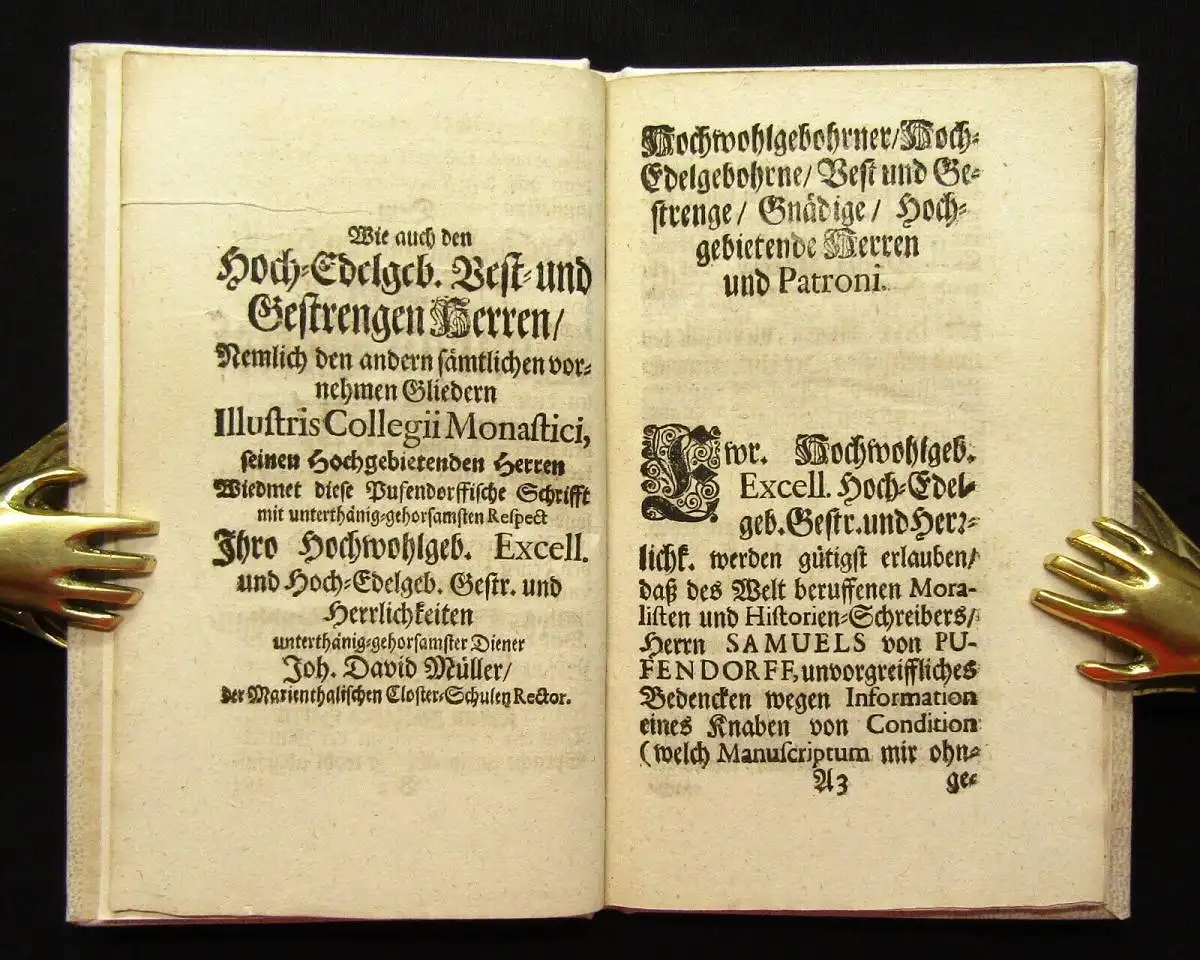 Wie auch den
Hoch-Edelgeb. Vest- und
Gestrengen Herren/
Nemlich den andern sämtlichen vor-
nehmen Gliedern
Illustris Collegii Monastici,
seinen Hochgebietenden Herren
Wiedmet diese Pufendorffische Schrifft
mit unterthänig-gehorsamsten Respect
Ihro Hochwohlgeb. Excell.
und Hoch-Edelgeb. Gestr. und
Herrlichkeiten
unterthänig-gehorsamster Diener
Joh. David Müller/
der Marienthalischen Closter-Schulen Rector.
Hochwohlgebohrner/ Hoch-
Edelgebohrne/ Vest und Ge-
strenge/ Gnädige/ Hoch-
gebietende Herren
und Patroni.
Ewr. Hochwohlgeb.
Excell. Hoch-Edel-
geb. Gestr. und Herr-
lichk. werden gütigst erlauben/
daß des Welt beruffenen Mora-
listen und Historien-Schreibers/
Herrn SAMUELS von PU-
FENDORFF, unvorgreiffliches
Bedencken wegen Information
eines Knaben von Condition
(welch Manuscriptum mir ohn-
A3 ge-